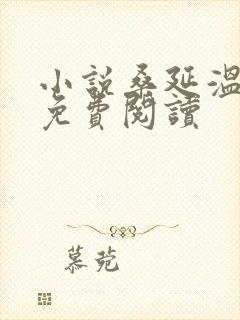 小說桑延溫
免費閱讀
慕菀